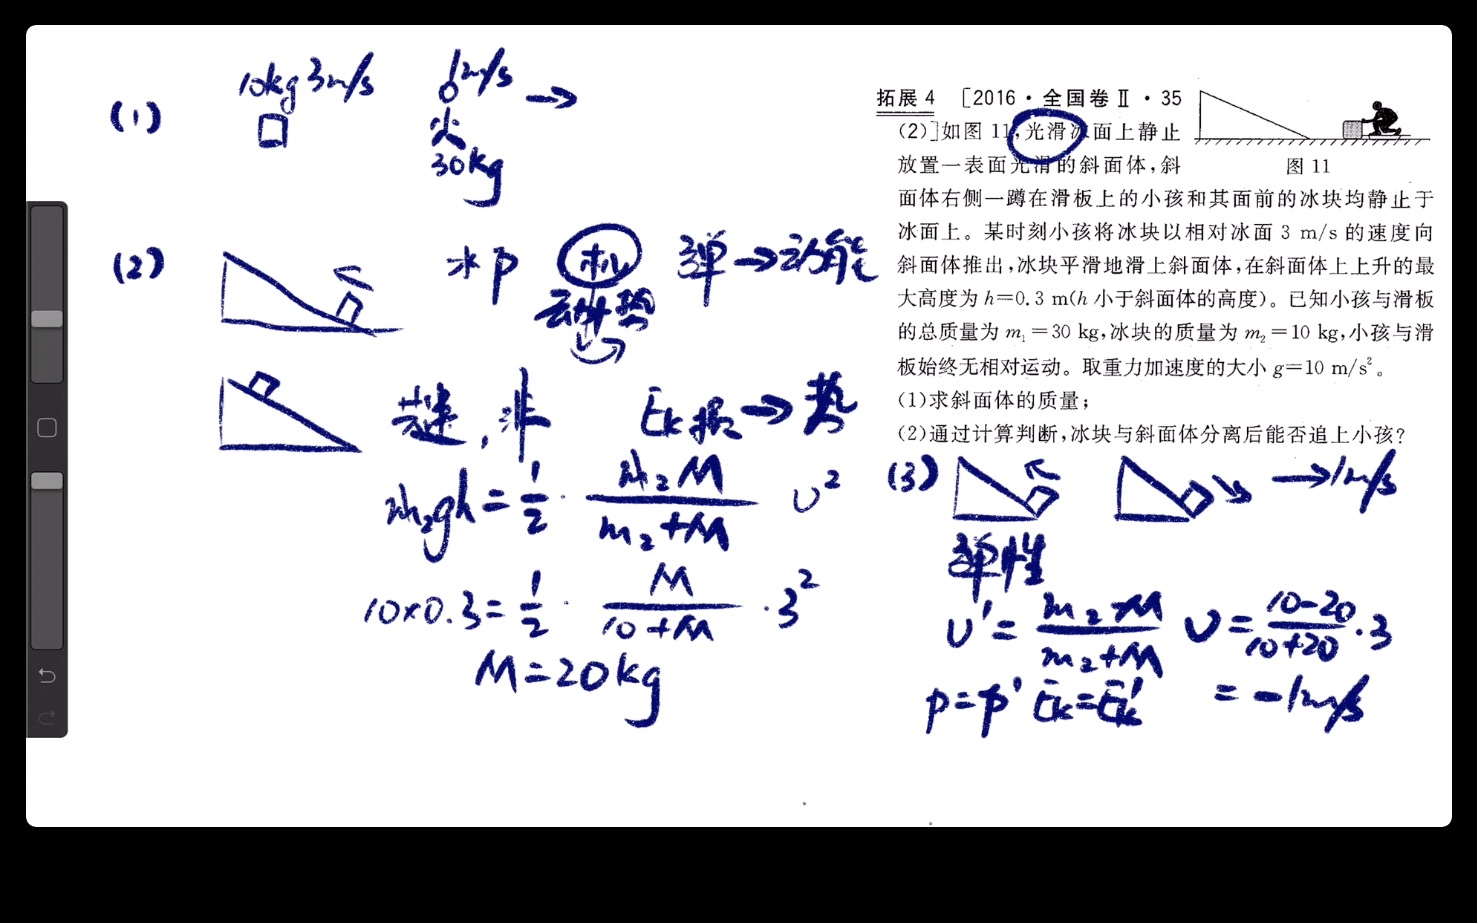 (1) 10kg 3m/s 1m/s →
30kg
拓展4 [2016·全国卷Ⅱ·35
(2)]如图11,光滑冰面上静止
放置一表面光滑的斜面体,斜
图11
面体右侧一蹲在滑板上的小孩和其面前的冰块均静止于
冰面上。某时刻小孩将冰块以相对冰面3 m/s的速度向
斜面体推出,冰块平滑地滑上斜面体,在斜面体上上升的最
大高度为h=0.3 m(h小于斜面体的高度)。已知小孩与滑板
的总质量为m₁=30 kg,冰块的质量为m₂=10 kg,小孩与滑
板始终无相对运动。取重力加速度的大小g=10 m/s²。
(1)求斜面体的质量;
(2)通过计算判断,冰块与斜面体分离后能否追上小孩?
(2) 水P 机 弹→动能
动 势
共速,非 Ek损→势
m₂gh=1/2·m₂M/(m₂+M) υ²
10×0.3=1/2·M/(10+M)·3²
M=20kg
(3) →1m/s
弹性
υ'=(m₂-M)/(m₂+M) υ=(10-20)/(10+20)·3
p=p' Ek=Ek' =-1m/s